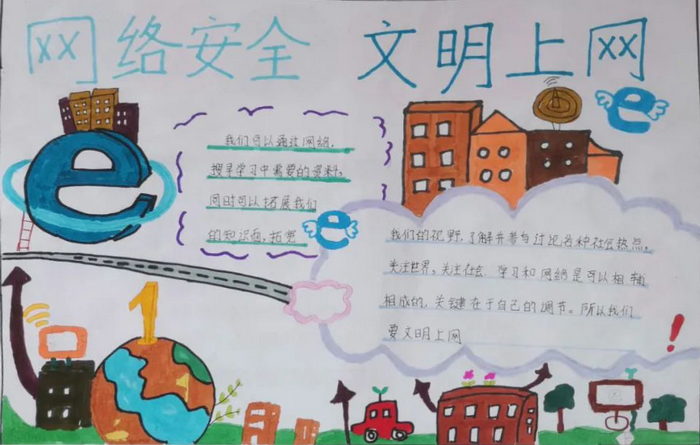 网络安全 文明上网
我们可以通过网络,
搜寻学习中需要的资料,
同时可以拓展我们
的知识面,拓宽
我们的视野,了解并参与讨论各种社会热点。
关注世界。关注社会 学习和网络是可以相辅
相成的,关键在于自己的调节。所以我们
要文明上网
e
e
e
1
!